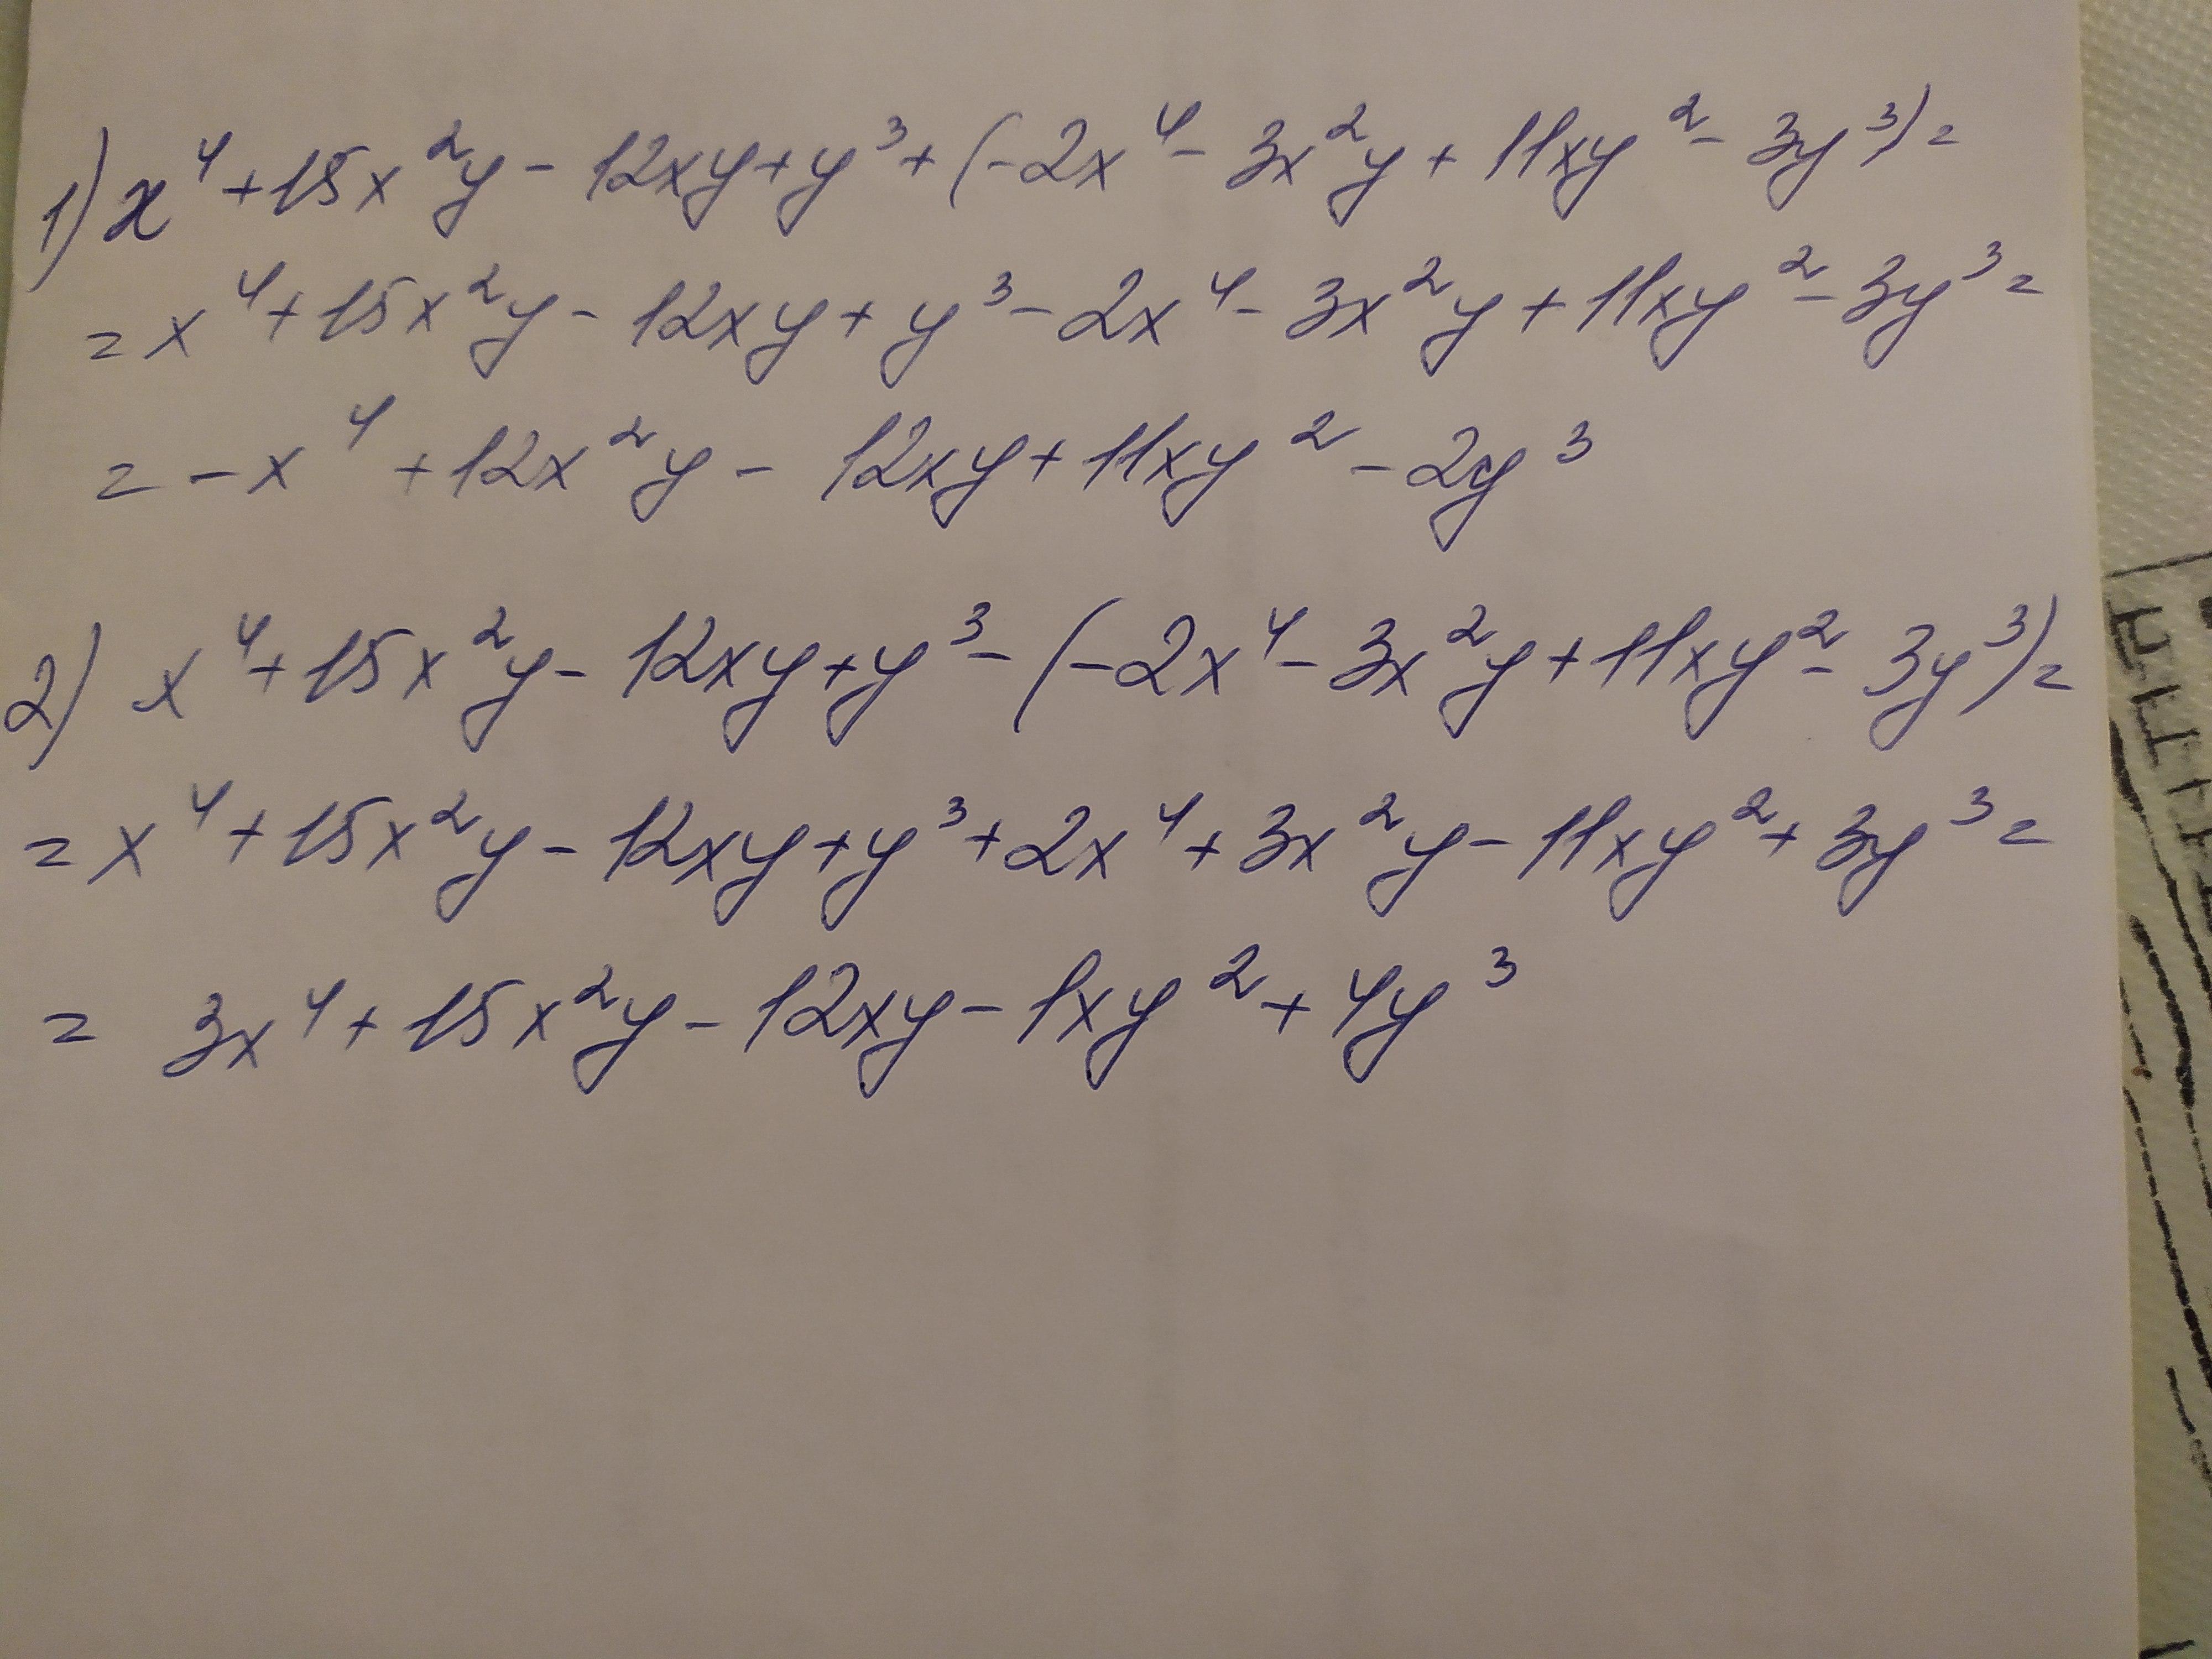 1) x⁴+15x²y-12xy+y³+(-2x⁴-3x²y+11xy²-3y³)=
=x⁴+15x²y-12xy+y³-2x⁴-3x²y+11xy²-3y³=
=-x⁴+12x²y-12xy+11xy²-2y³
2) x⁴+15x²y-12xy+y³-(-2x⁴-3x²y+11xy²-3y³)=
=x⁴+15x²y-12xy+y³+2x⁴+3x²y-11xy²+3y³=
=3x⁴+15x²y-12xy-1xy²+4y³